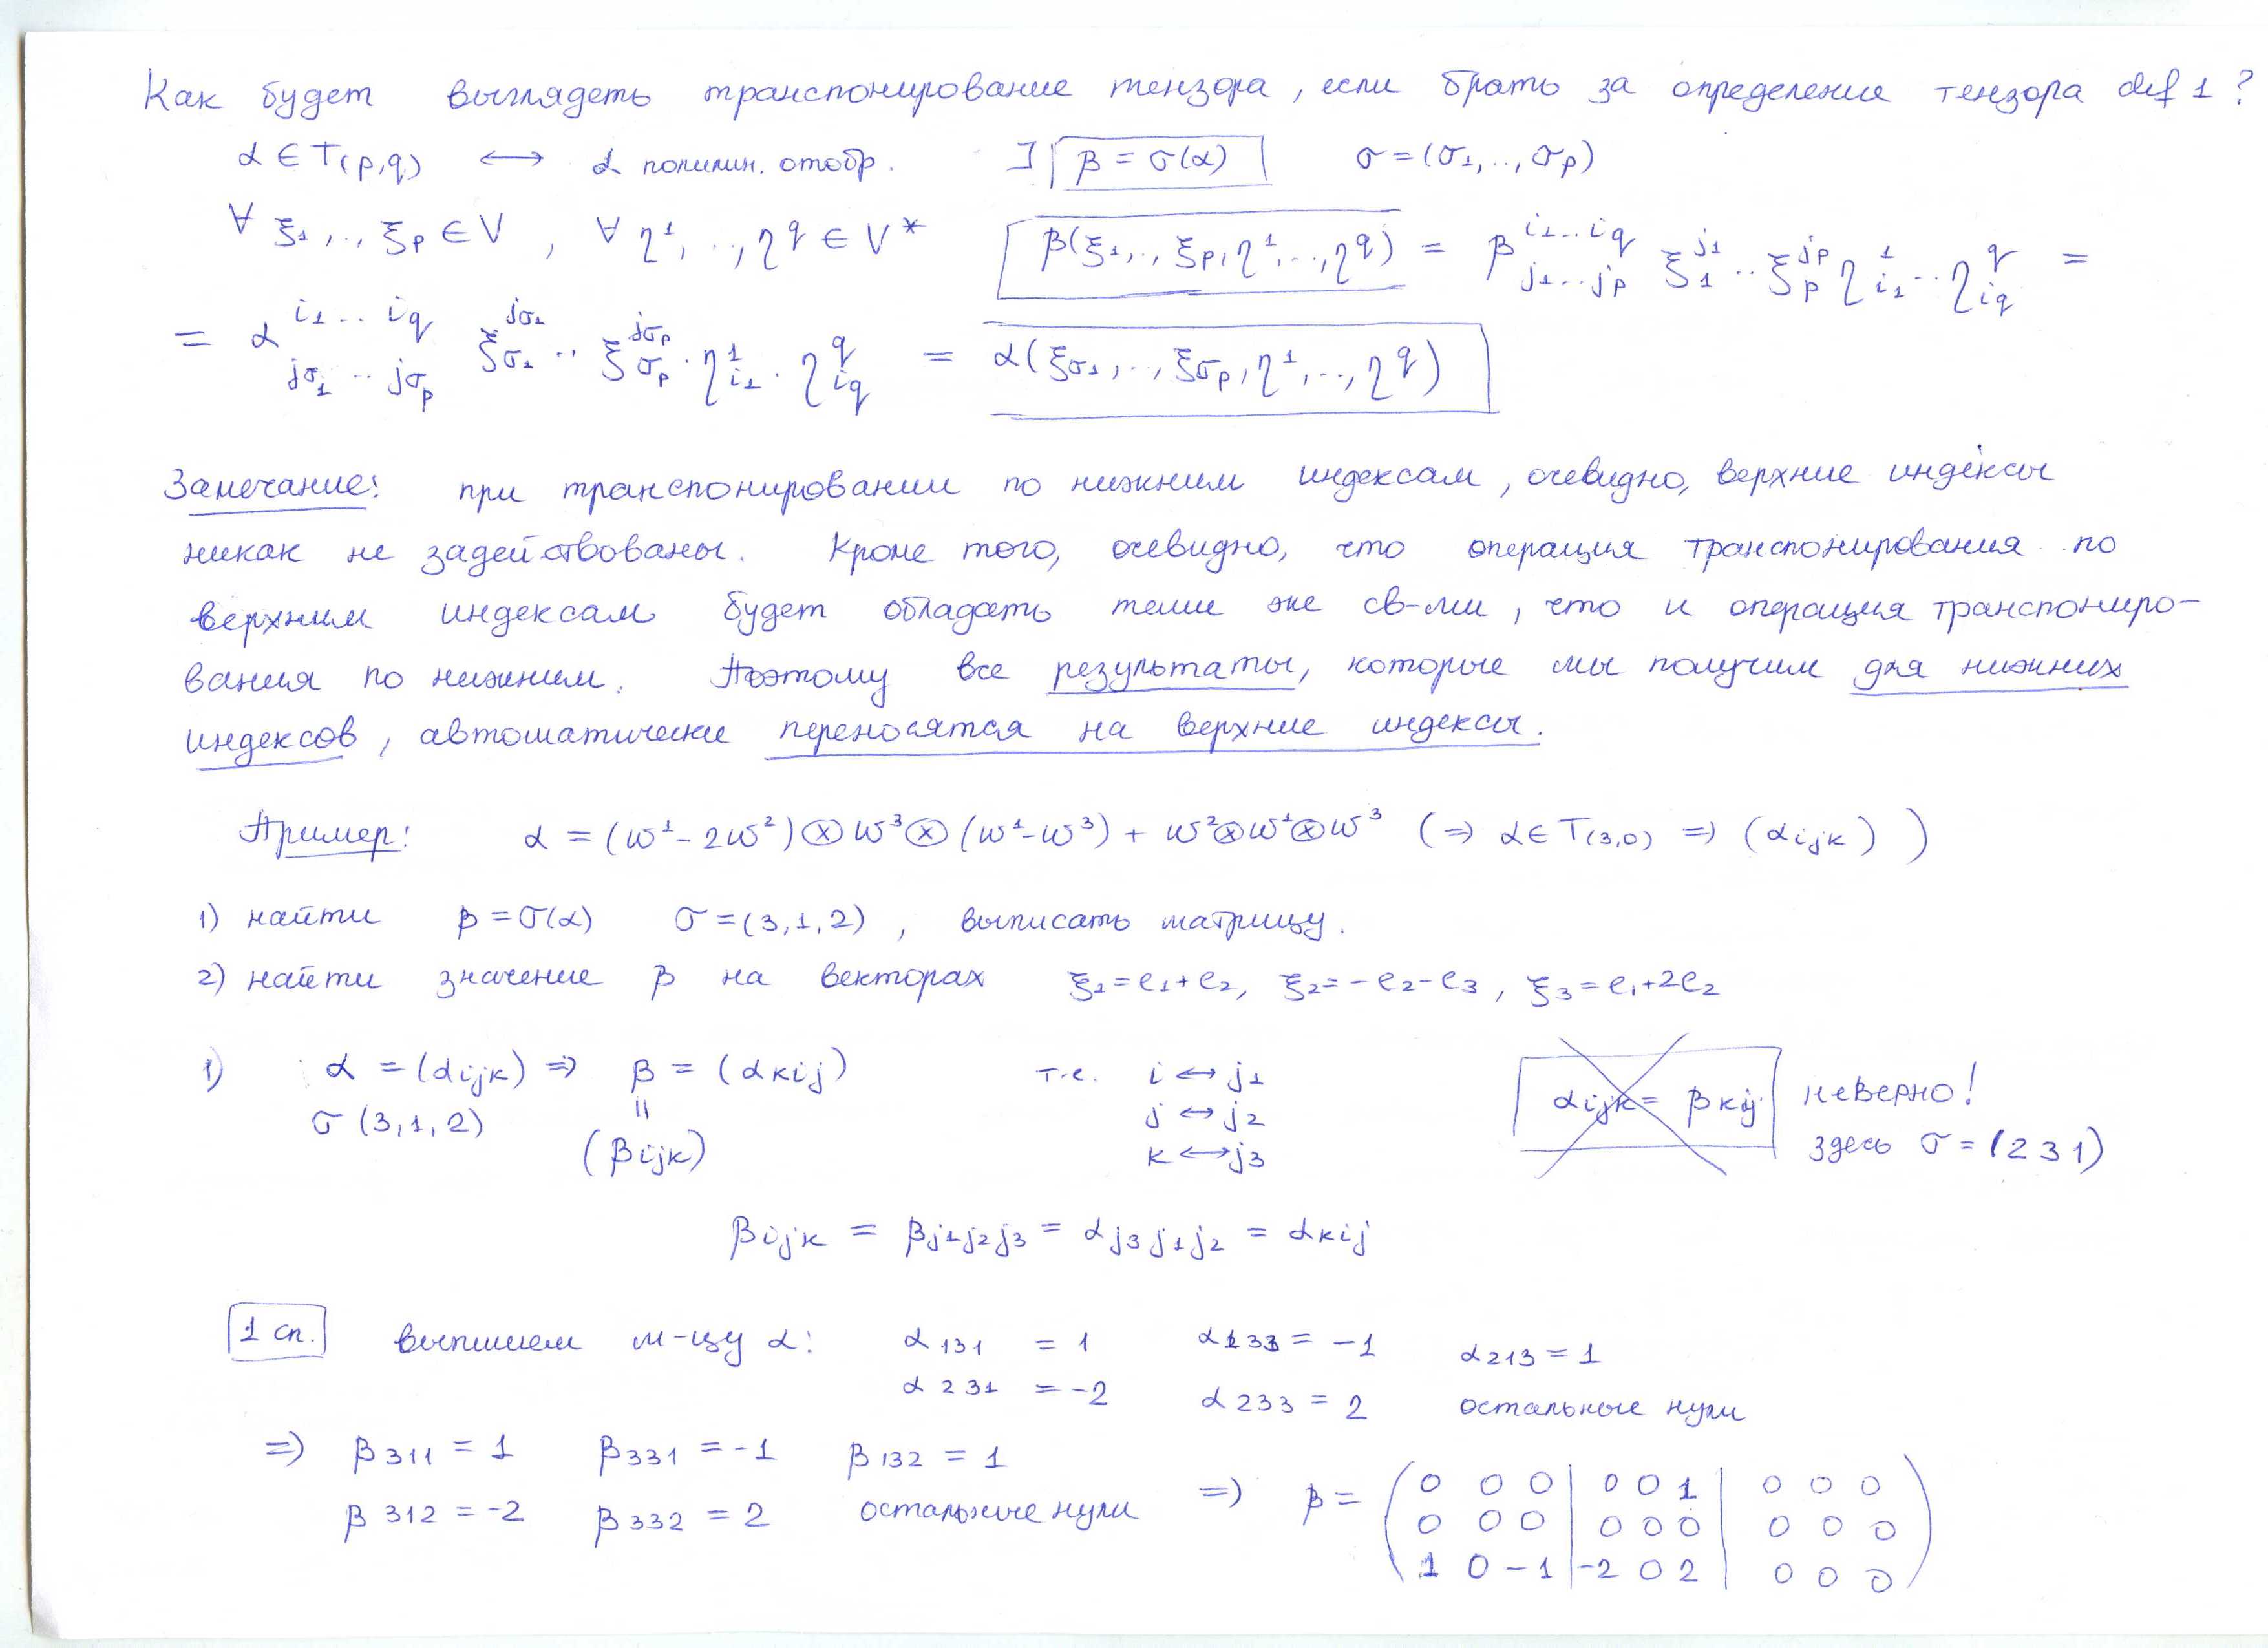 Как будет выглядеть транспонирование тензора, если брать за определение тензора def 1?
α ∈ T(p,q) ⟷ α полилин. отобр. ∃ β = σ(α) σ = (σ₁,..,σₚ)
∀ ξ₁,..,ξₚ ∈ V , ∀ η¹,..,η^q ∈ V* β(ξ₁,..,ξₚ,η¹,..,η^q) = β^{i₁..i_q}_{j₁..j_p} ξ₁^{j₁}..ξₚ^{jₚ} η¹_{i₁}..η^q_{i_q} =
= α^{i₁..i_q}_{j_{σ₁}..j_{σₚ}} ξ_{σ₁}^{j_{σ₁}}..ξ_{σₚ}^{j_{σₚ}}·η¹_{i₁}.η^q_{i_q} = α(ξ_{σ₁},..,ξ_{σₚ},η¹,..,η^q)
Замечание: при транспонировании по нижним индексам, очевидно, верхние индексы
никак не задействованы. Кроме того, очевидно, что операция транспонирования по
верхним индексам будет обладать теми же св-ми, что и операция транспониро-
вания по нижним. Поэтому все результаты, которые мы получим для нижних
индексов, автоматически переносятся на верхние индексы.
Пример: α = (w¹-2w²)⊗w³⊗(w¹-w³) + w²⊗w¹⊗w³ (⇒ α ∈ T(3,0) ⇒ (α_{ijk}))
1) найти β = σ(α) σ = (3,1,2) , выписать матрицу.
2) найти значение β на векторах ξ₁=e₁+e₂, ξ₂=-e₂-e₃, ξ₃=e₁+2e₂
1) α = (α_{ijk}) ⇒ β = (α_{kij}) т.е. i ↔ j₁ α_{ijk} = β_{kij} неверно!
σ (3,1,2) = (β_{ijk}) j ↔ j₂ k ↔ j₃ здесь σ = (2 3 1)
β_{ijk} = β_{j₁j₂j₃} = α_{j₃j₁j₂} = α_{kij}
1 сп. выпишем м-цу α: α₁₃₁ = 1 α₁₃₃ = -1 α₂₁₃ = 1
α₂₃₁ = -2 α₂₃₃ = 2 остальные нули
⇒ β₃₁₁ = 1 β₃₃₁ = -1 β₁₃₂ = 1
β₃₁₂ = -2 β₃₃₂ = 2 остальные нули ⇒ β =
0 0 0 | 0 0 1 | 0 0 0
0 0 0 | 0 0 0 | 0 0 0
1 0 -1 | -2 0 2 | 0 0 0